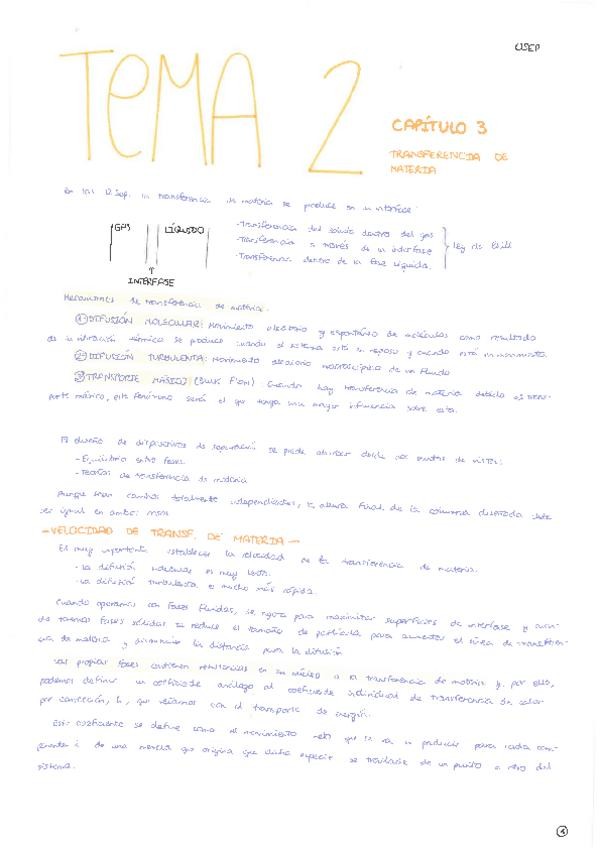 USEP
TEMA 2
CAPÍTULO 3
TRANSFERENCIA DE
MATERIA
En las la transferencia de materia se produce en la interfase
GAS
LÍQUIDO
INTERFASE
-Transferencia del soluto dentro del gas
-Transferencia a través de la interfase
-Transferencia dentro de la fase líquida.
Ley de
Mecanismos de transferencia de materia:
① DIFUSIÓN MOLECULAR: Movimiento aleatorio y espontáneo de moléculas como resultado
de la térmica se produce cuando el sistema está en reposo y cuando está en movimiento.
② DIFUSIÓN TURBULENTA: Movimiento aleatorio macroscópico de un fluido
③ TRANSPORTE MÁSICO (BULK FLOW) Cuando hay transferencia de materia debido al trans-
porte másico, este fenómeno será el que tenga una mayor influencia sobre esta.
El diseño de dispositivos de separación se puede abordar desde dos puntos de vista:
-Equilibrio entre fases.
-Teorías de transferencia de materia
Aunque sean caminos totalmente independientes, la altura final de la columna diseñada debe
ser igual en ambos casos
-VELOCIDAD DE TRANSF. DE MATERIA-
Es muy importante establecer la velocidad de la transferencia de materia.
-La difusión molecular es muy lenta.
-La difusión turbulenta es mucho más rápida.
Cuando operamos con fases fluidas, se agita para maximizar superficies de interfase y cuan-
do tenemos fases sólidas se reduce el tamaño de partícula para aumentar el área de transferen-
cia de materia y disminuir la distancia para la difusión
Las propias fases contienen resistencias en su núcleo a la transferencia de materia y, por ello,
podemos definir un coeficiente análogo al coeficiente individual de transferencia de calor
por convección, h, que veíamos con el transporte de energía.
Este coeficiente se define como el movimiento neto que se va a producir para cada com-
ponente i de una mezcla que origina que dicha especie se traslade de un punto a otro del
sistema.
①